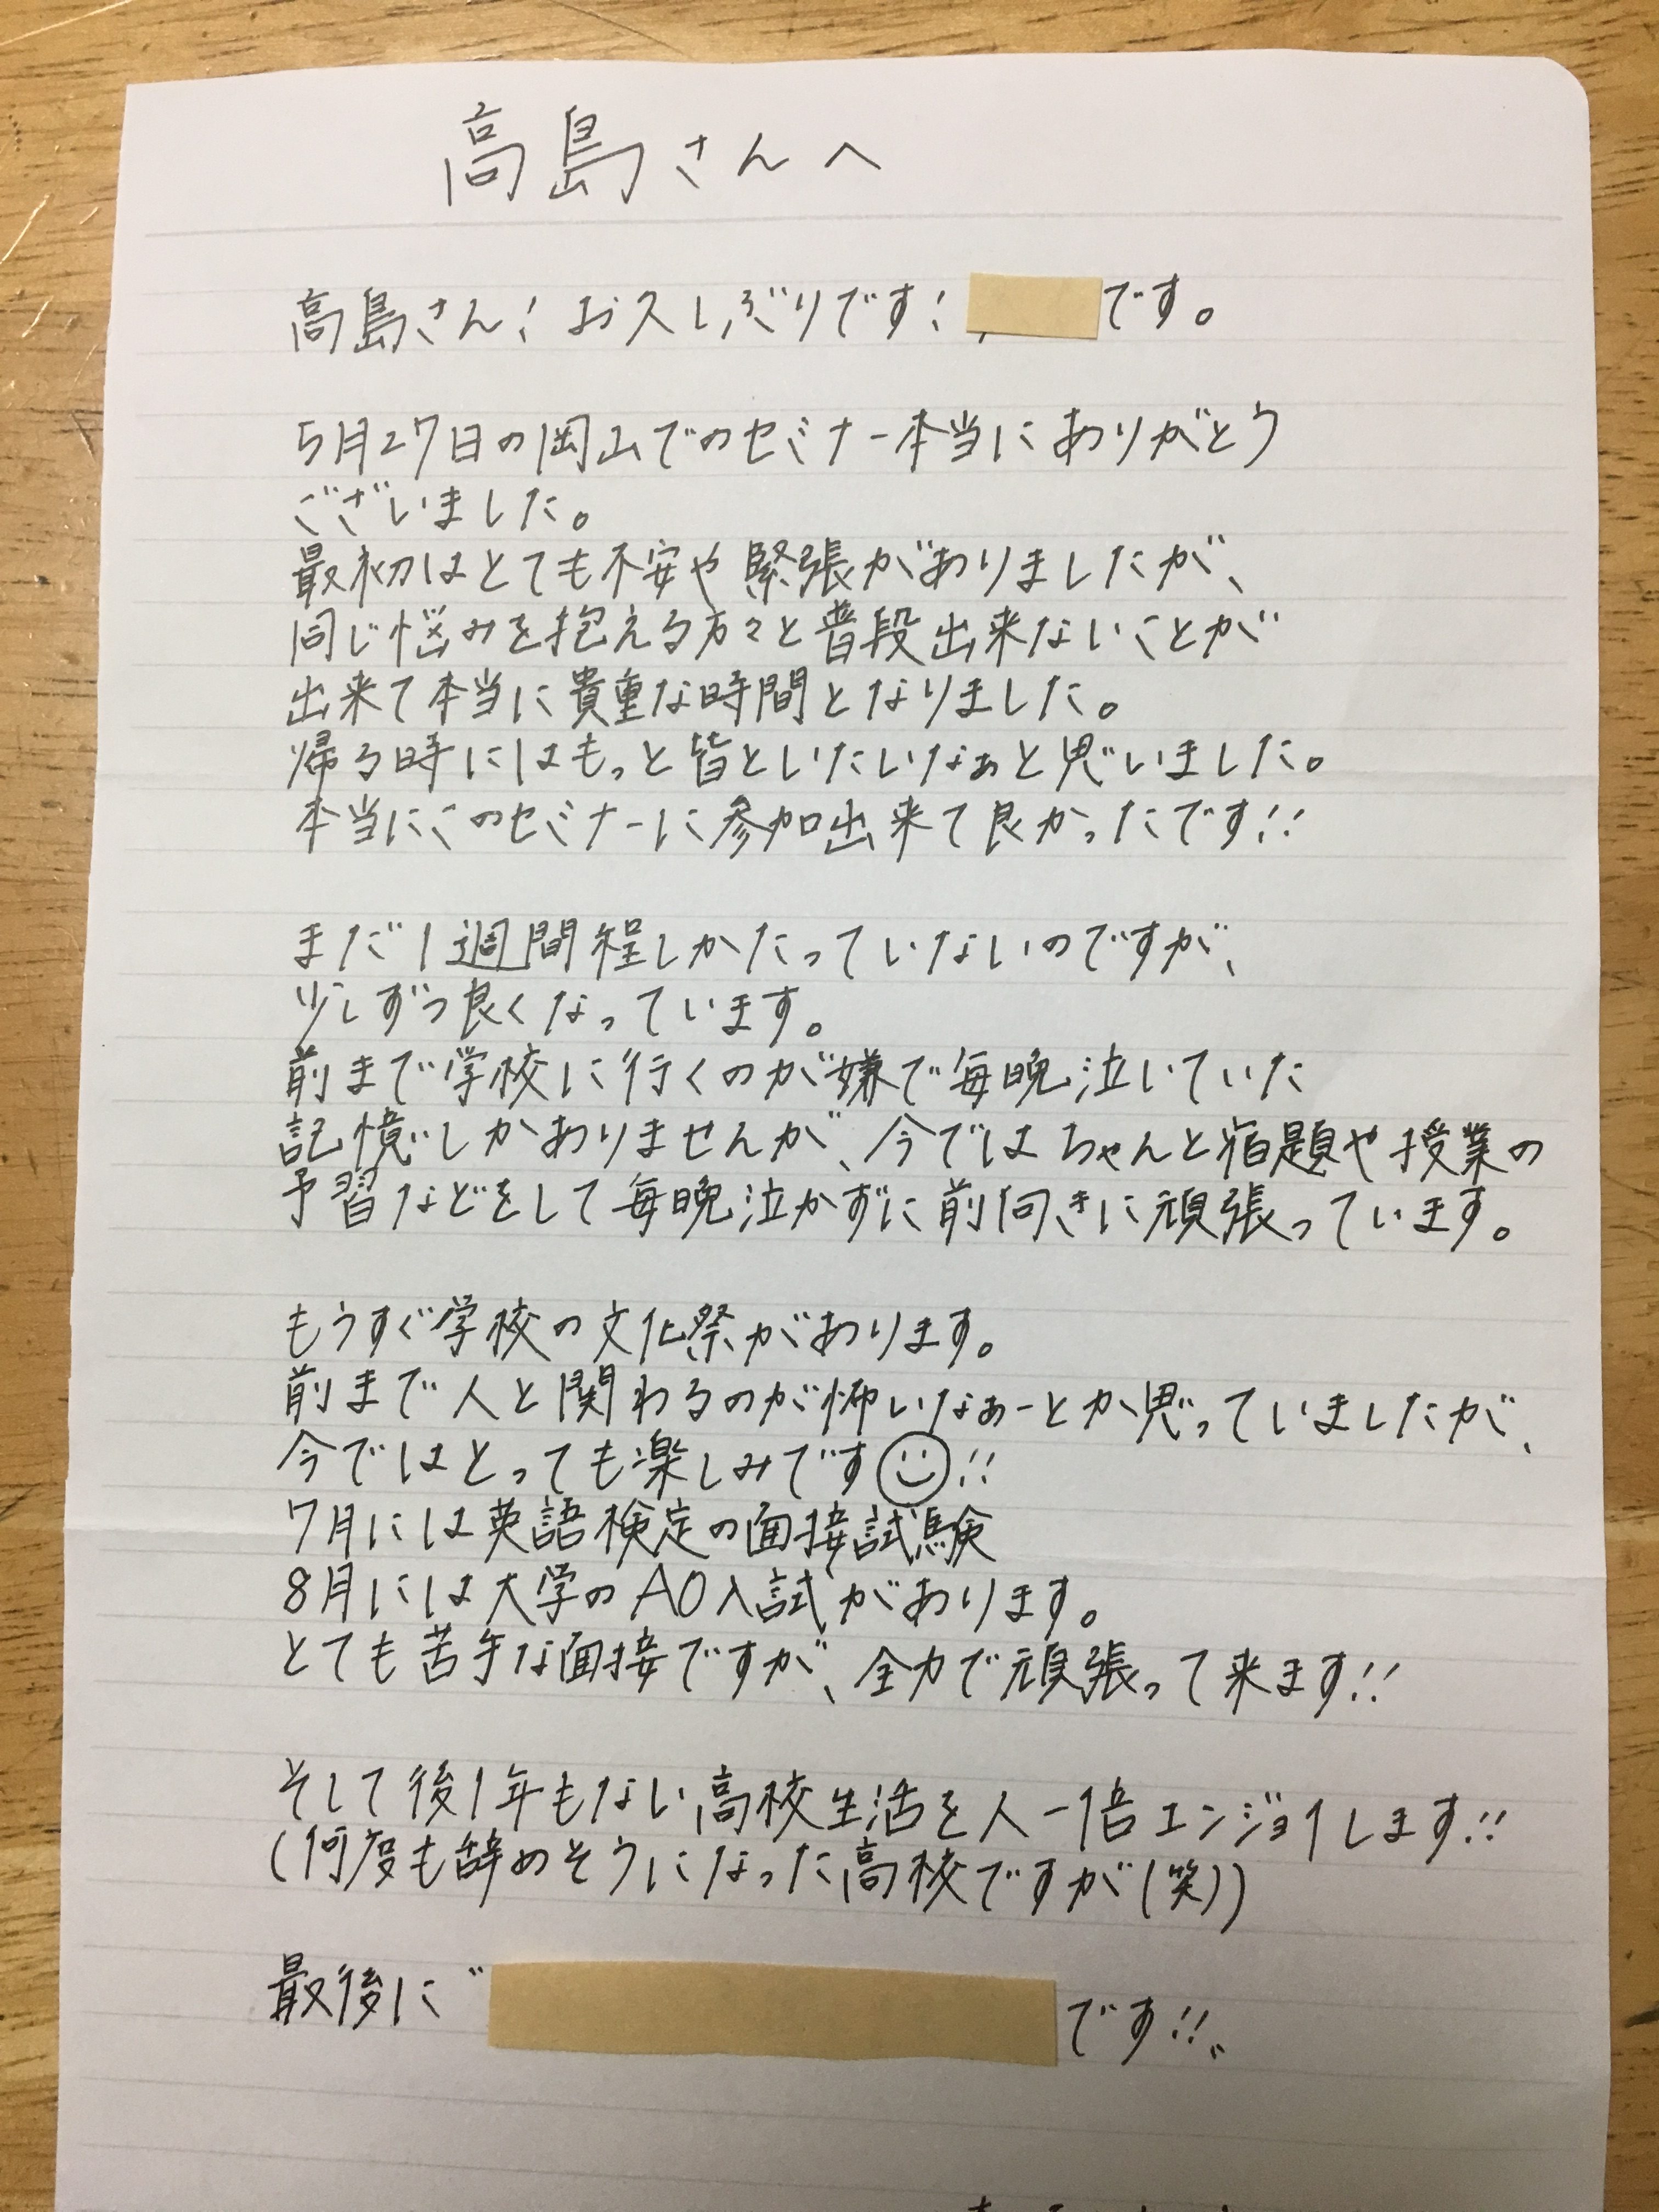 高島さんへ
高島さん! お久しぶりです! です。
5月27日の岡山でのセミナー本当にありがとう
ございました。
最初はとても不安や緊張がありましたが、
同じ悩みを抱える方々と普段出来ないことが
出来て本当に貴重な時間となりました。
帰る時にはもっと皆といたいなぁと思いました。
本当にこのセミナーに参加出来て良かったです!!
まだ1週間程しかたっていないのですが、
少しずつ良くなっています。
前まで学校に行くのが嫌で毎晩泣いていた
記憶しかありませんが、今ではちゃんと宿題や授業の
予習などをして毎晩泣かずに前向きに頑張っています。
もうすぐ学校の文化祭があります。
前まで人と関わるのが怖いなぁーとか思っていましたが、
今ではとっても楽しみです☺!!
7月には英語検定の面接試験
8月には大学のAO入試があります。
とても苦手な面接ですが、全力で頑張って来ます!!
そして後1年もない高校生活を人一倍エンジョイします!!
(何度も辞めそうになった高校ですが(笑))
最後に〝 です!!〟